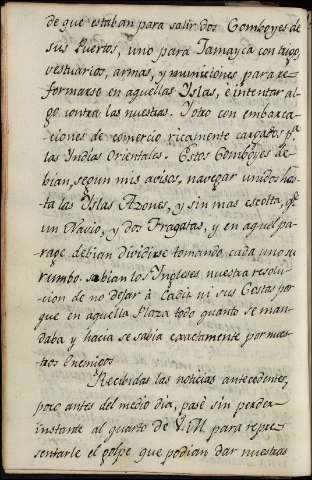 de que estaban para salir dos Comboyes de
sus Puertos, uno para Jamayca con trigo,
vestuarios, armas, y municiones para re
formarse en aquellas Yslas, è intentar al-
go contra las nuestras. Y otro con embarca-
ciones de comercio ricamente cargados pª
las Yndias Orientales. Estos Comboyes de-
bian, segun mis avisos, navegar unidos has-
ta las Yslas Azores, y sin mas escolta, qe
un Navio, y dos Fragatas, y en aquel pa-
rage debian dividirse tomando cada uno su
rumbo. Sabian los Yngleses nuestra resolu-
cion de no dejar à Cadiz ni sus Costas por
que en aquella Plaza todo quanto se man-
daba y hacia se sabia exactamente por nues-
tros Enemigos
Recibidas las noticias antecedentes,
poco antes del medio dia, pasè sin perder
instante al quarto de V.M. para repre
sentarle el golpe que podian dar nuestras